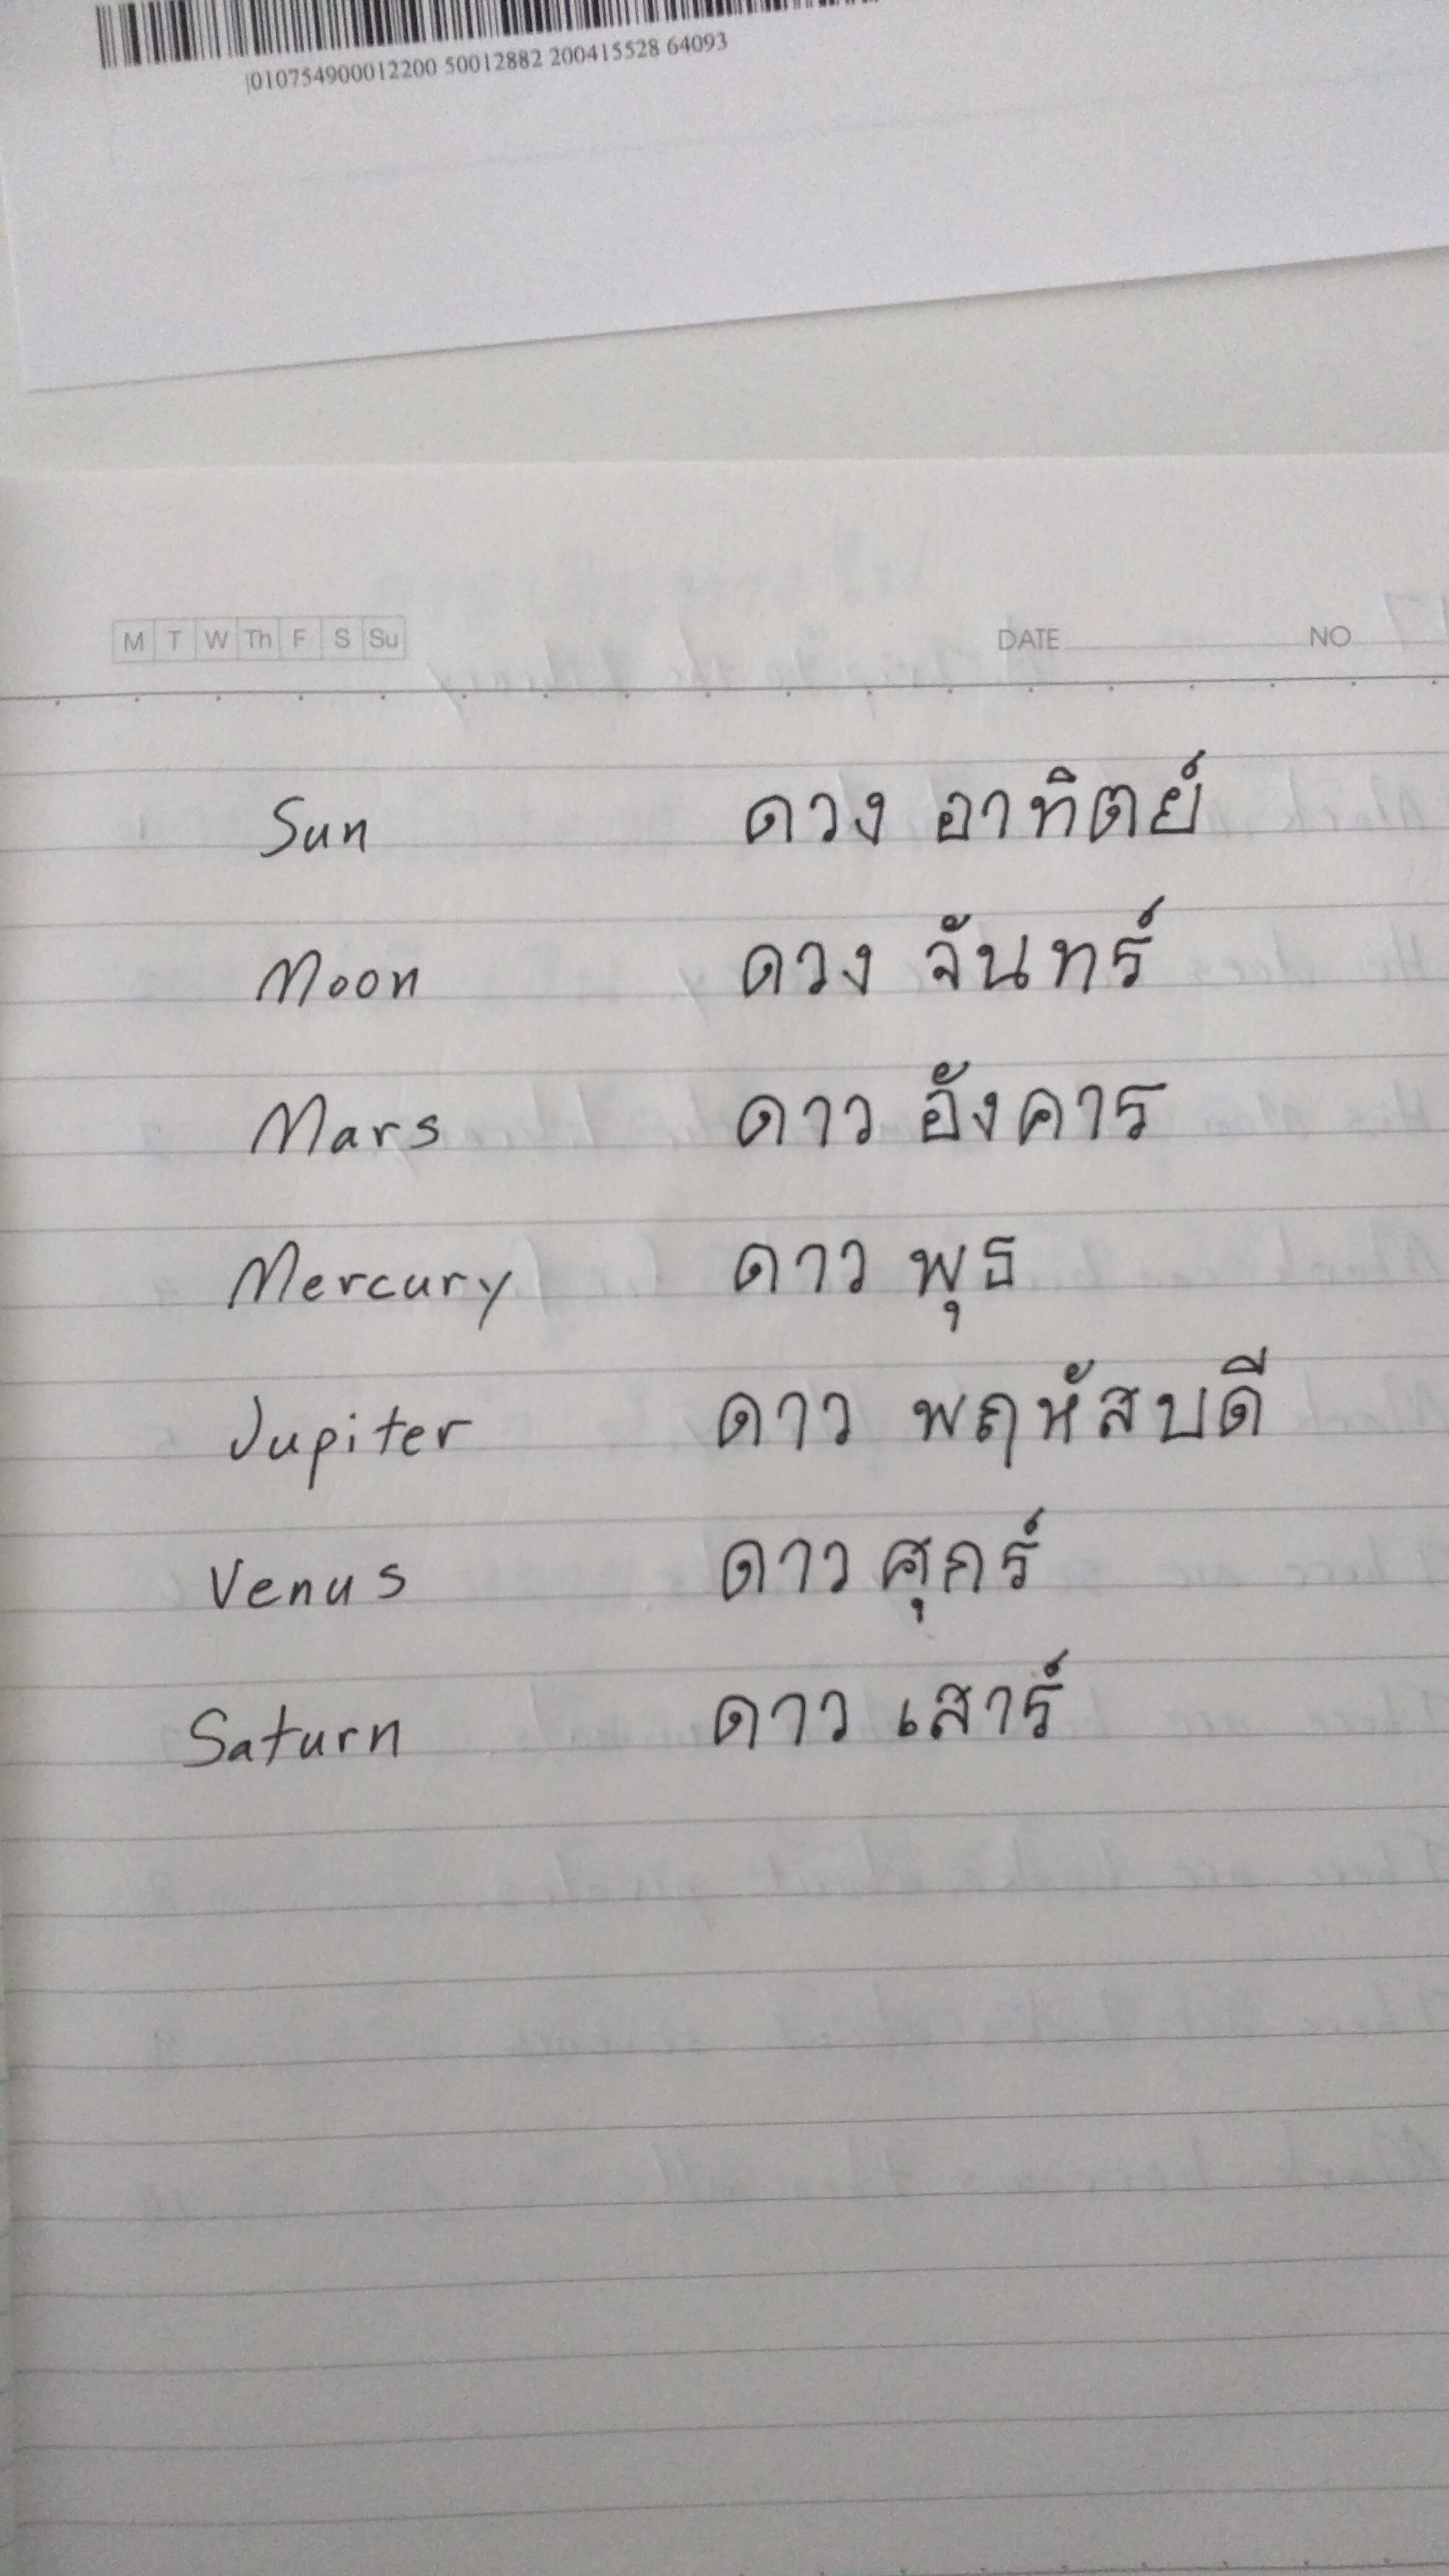 |010754900012200 50012882 200415528 64093
M T W Th F S Su DATE NO
Sun ดวง อาทิตย์
Moon ดวง จันทร์
Mars ดาว อังคาร
Mercury ดาว พุธ
Jupiter ดาว พฤหัสบดี
Venus ดาว ศุกร์
Saturn ดาว เสาร์